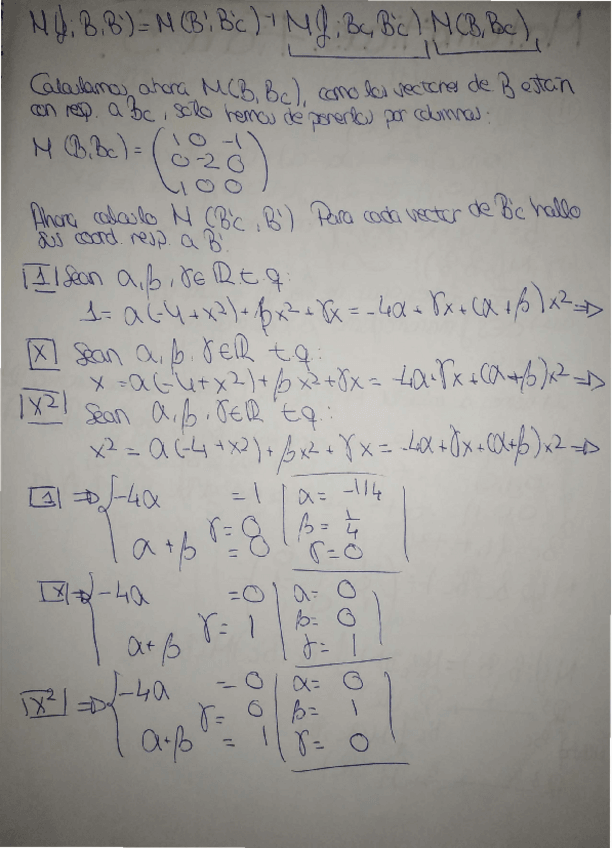 M(f; B, B') = M(B', B'c)⁻¹ M(f; Bc, B'c) M(B, Bc)
Calculamos ahora M(B, Bc), como los vectores de B están
con resp. a Bc, sólo hemos de ponerlos por columnas:
M(B, Bc) = ( 1 0 -1
0 -2 0
-1 0 0 )
Ahora calculo M(B'c, B') Para cada vector de B'c hallo
sus coord. resp. a B'.
|1| Sean α, β, γ ∈ ℝ t.q.
1 = α(-4+x²) + βx² + γx = -4α + γx + (α+β)x² ⇒
|x| Sean α, β, γ ∈ ℝ t.q.:
x = α(-4+x²) + βx² + γx = -4α+γx + (α+β)x² ⇒
|x²| Sean α, β, γ ∈ ℝ t.q.:
x² = α(-4+x²) + βx² + γx = -4α + γx + (α+β)x² ⇒
|1| ⇒ { -4α = 1 | α = -1/4
γ = 0 | β = 1/4
α + β = 0 | γ = 0
|x| ⇒ { -4α = 0 | α = 0
γ = 1 | β = 0
α+β | γ = 1
|x²| ⇒ { -4α = 0 | α = 0
γ = 0 | β = 1
α+β = 1 | γ = 0